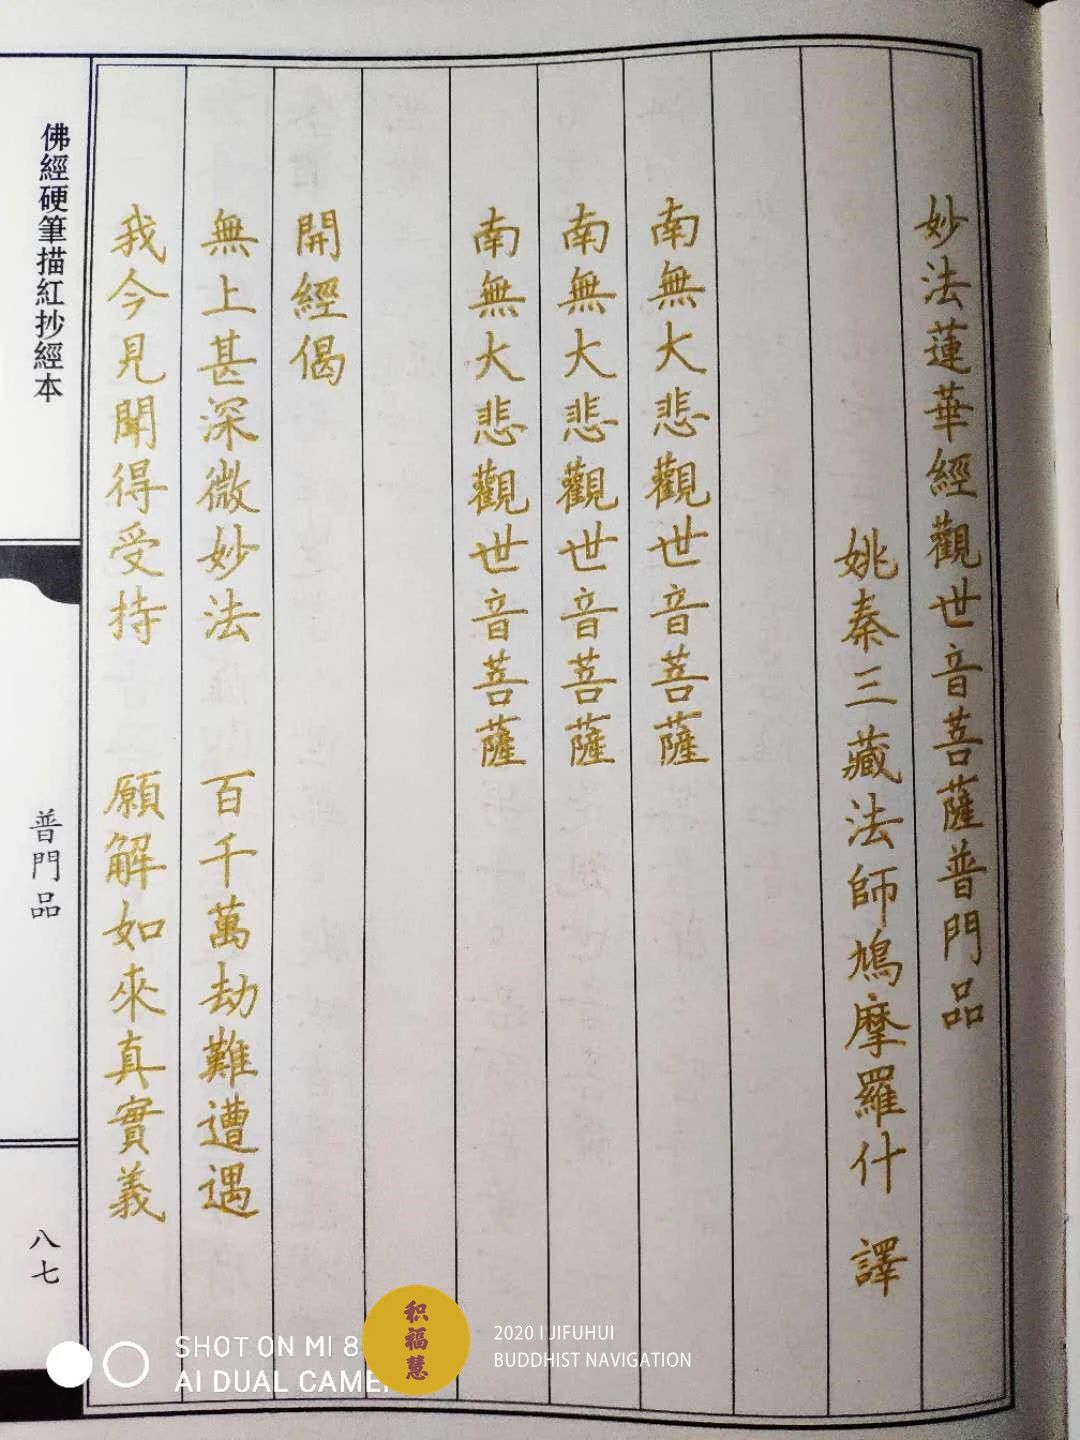 妙法蓮華經觀世音菩薩普門品
姚秦三藏法師鳩摩羅什 譯
南無大悲觀世音菩薩
南無大悲觀世音菩薩
南無大悲觀世音菩薩
開經偈
無上甚深微妙法 百千萬劫難遭遇
我今見聞得受持 願解如來真實義
佛經硬筆描紅抄經本
普門品
八七
SHOT ON MI 8
AI DUAL CAMER
积福慧
2020 I JIFUHUI
BUDDHIST NAVIGATION